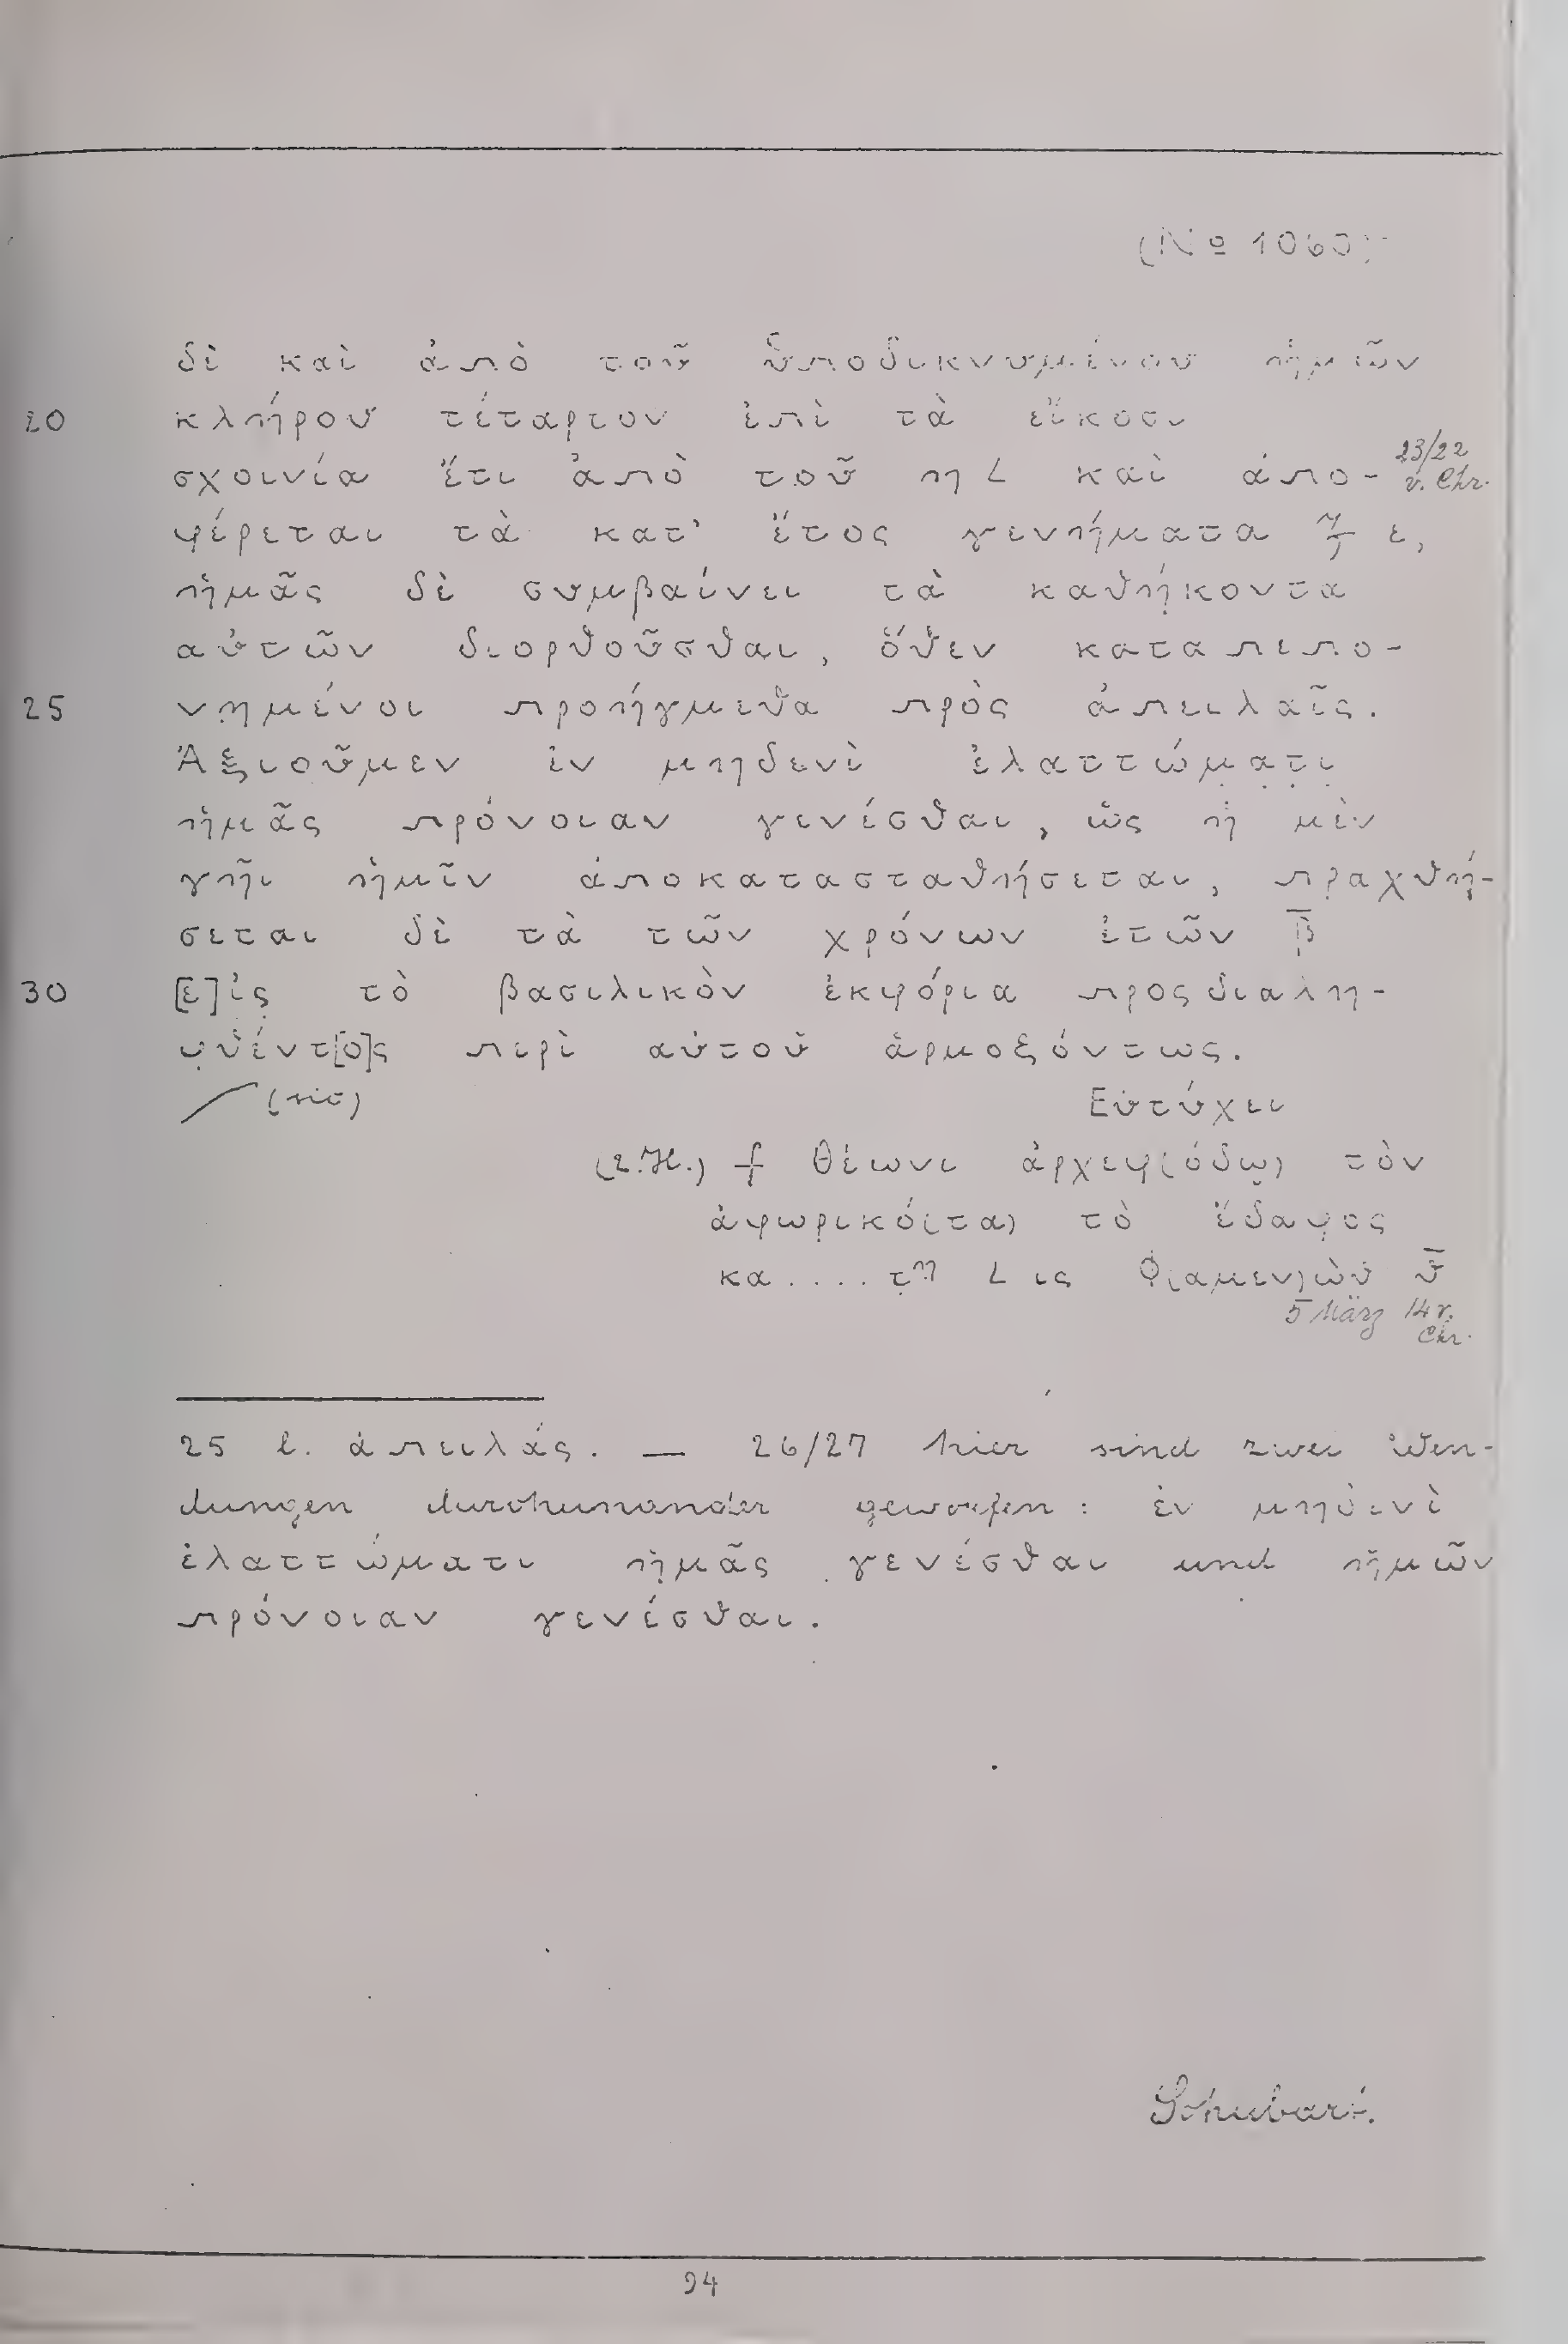 (No 1060)
δὲ καὶ ἀπὸ τοῦ ὑποδικνυμένου ἡμῶν
20 κλήρου τέταρτον ἐπὶ τὰ εἴκοσι
σχοινία ἔτι ἀπὸ τοῦ η L καὶ ἀπο- 23/22 v. Chr.
φέρεται τὰ κατ' ἔτος γενήματα ε,
ἡμᾶς δὲ συμβαίνει τὰ καθήκοντα
αὐτῶν διορθοῦσθαι, ὅθεν καταπεπο-
25 νημένοι προήγμεθα πρὸς ἀπειλαῖς.
Ἀξιοῦμεν ἐν μηδενὶ ἐλαττώμ̣α̣τ̣ι̣
ἡμᾶς πρόνοιαν γενέσθαι, ὡς ἡ μὲν
γῆι ἡμῖν ἀποκατασταθήσεται, πραχθή-
σεται δὲ τὰ τῶν χρόνων ἐτῶν β̅
30 [ε]ἰς τὸ βασιλικὸν ἐκφόρια προςδιαλη-
φθέντ[ο]ς περὶ αὐτοῦ ἁρμοξόντως.
/ (sic) Εὐτύχει
(2.H.) Θέωνι ἀρχεφ(όδῳ) τὸν
ἀφωρικό(τα) τὸ ἔδαφος
κα . . . . τη L ις Φ(αμεν)ὼθ θ̅
5 März 14 v. Chr.
25 l. ἀπειλάς. — 26/27 hier sind zwei Wen-
dungen durcheinander geworfen: ἐν μηδενὶ
ἐλαττώματι ἡμᾶς γενέσθαι und ἡμῶν
πρόνοιαν γενέσθαι.
Schubart.
94